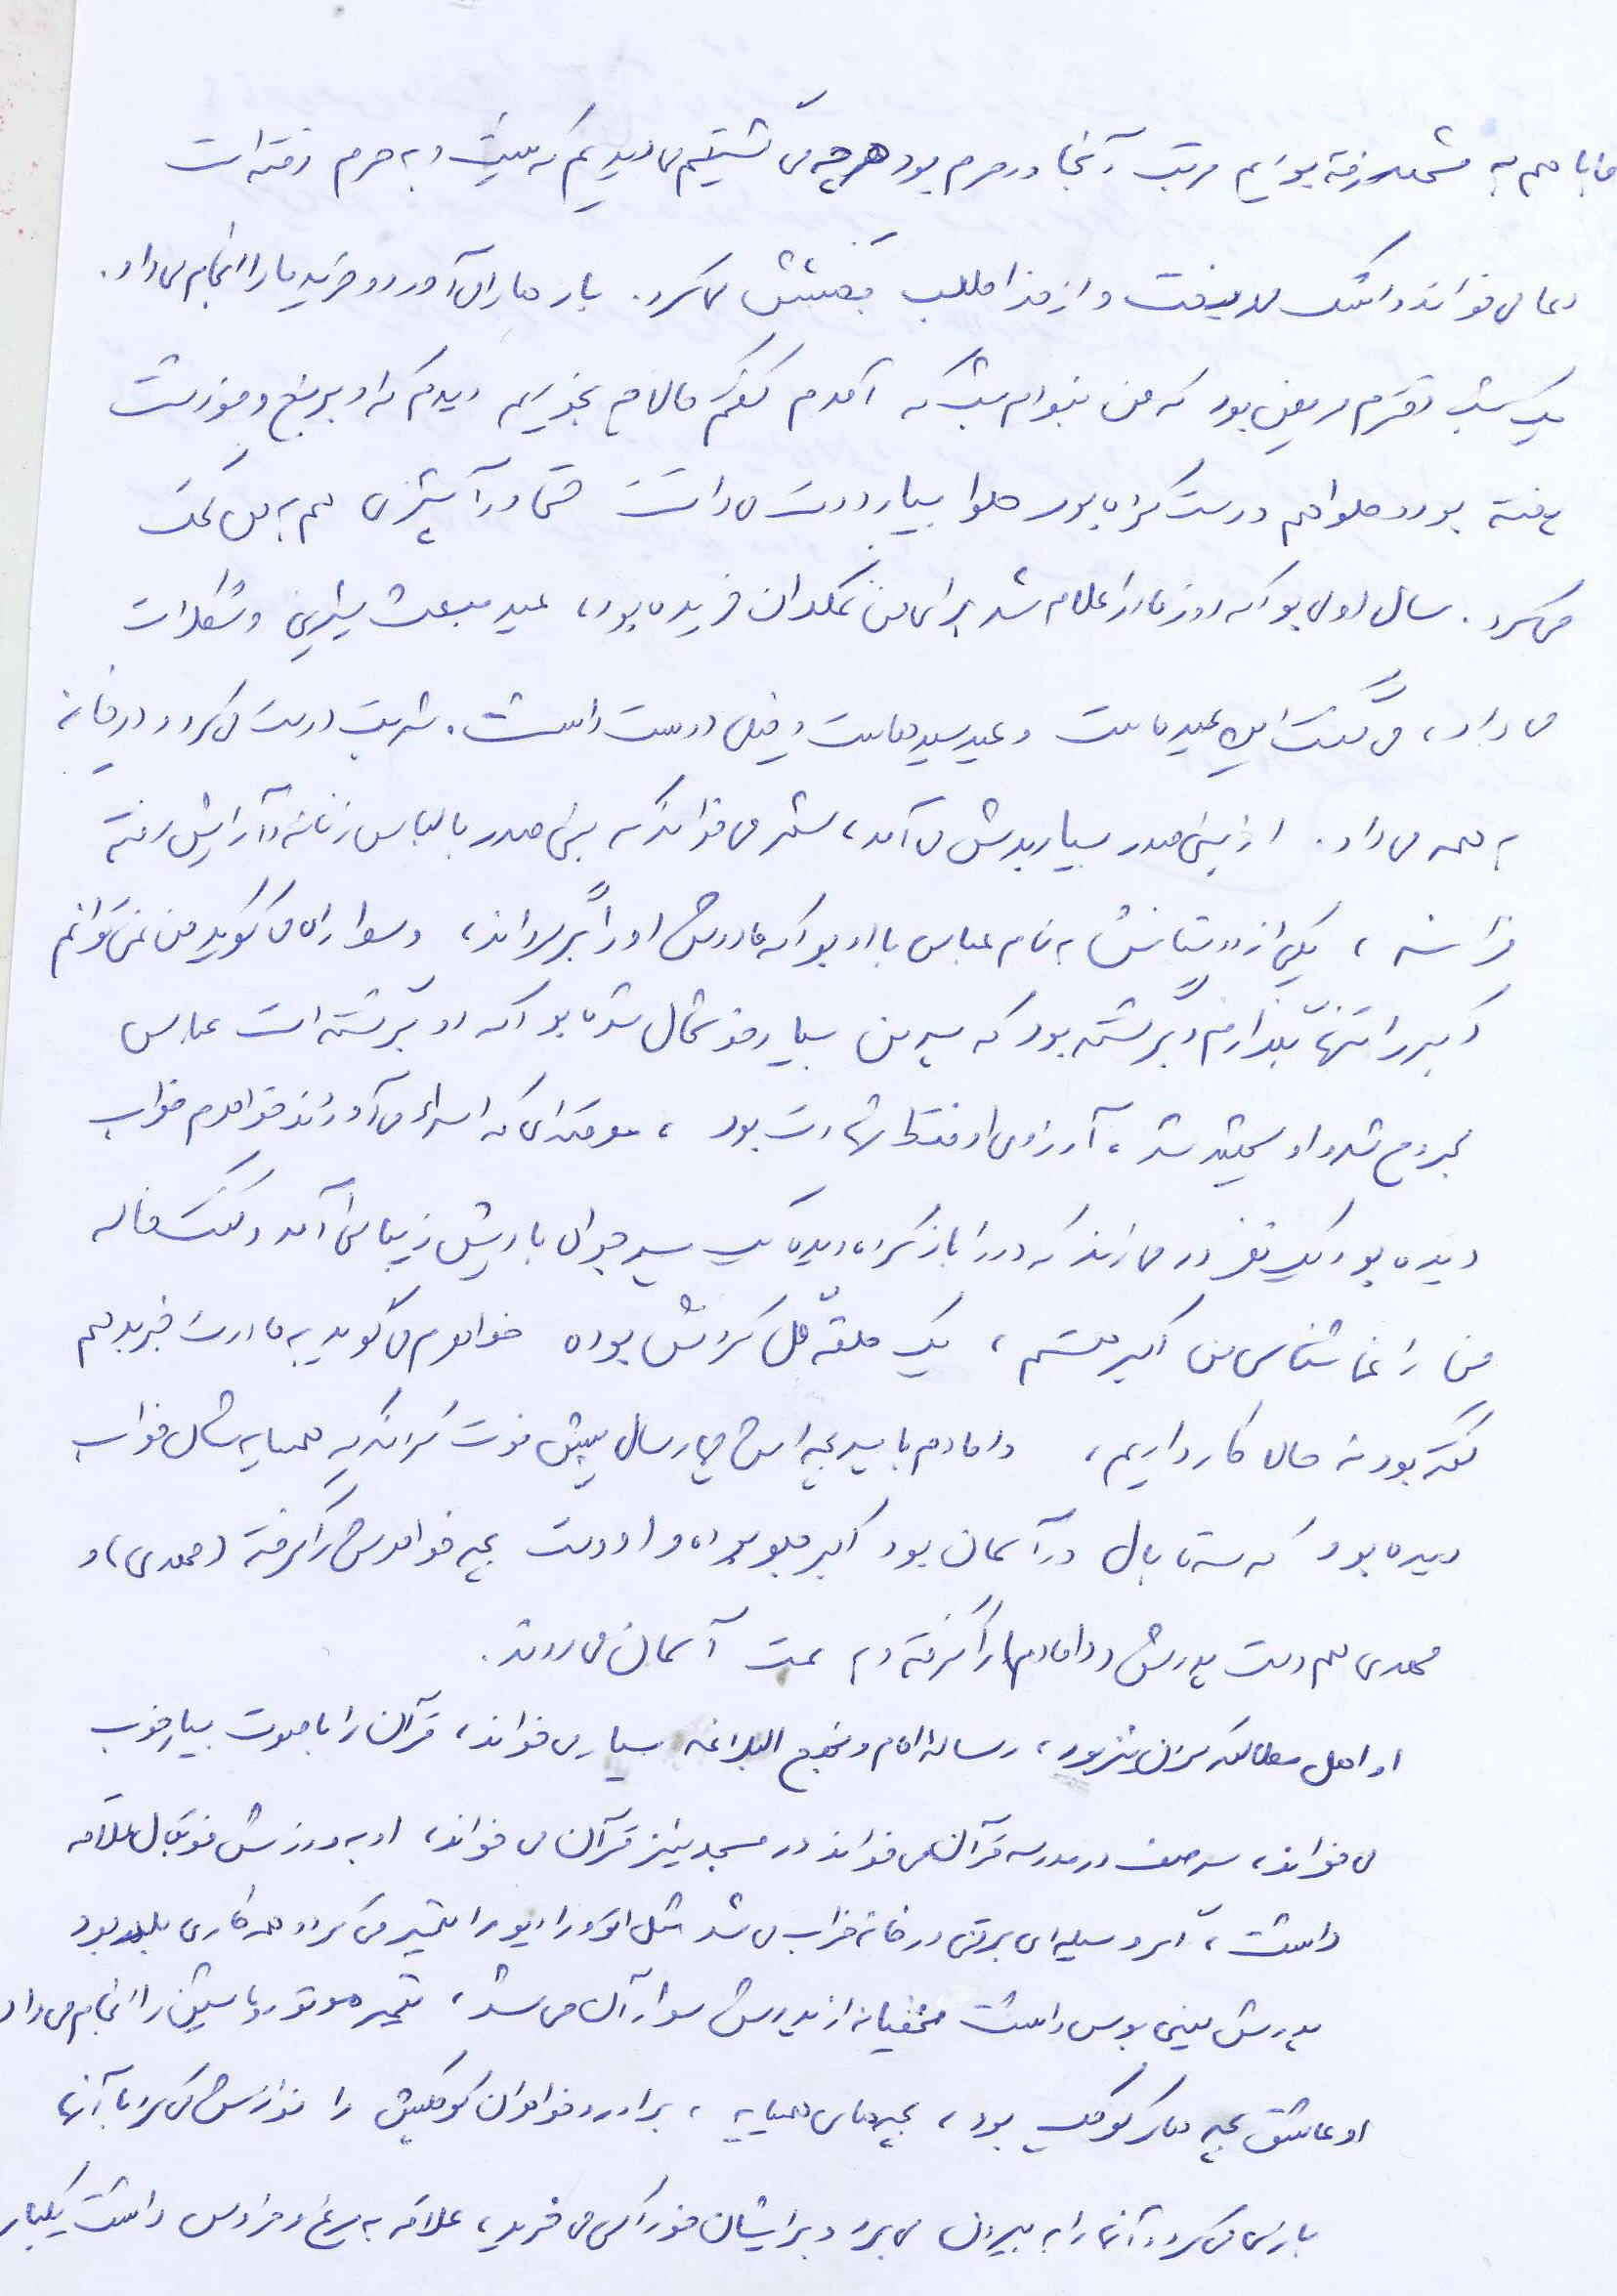 ما با هم به مشهد رفته بودیم مرتب آنجا در حرم بود هرچه می گشتیم می دیدیم که نیست و به حرم رفته است
دعا می خواند و اشک می ریخت و از خدا طلب بخشش می کرد. بارها را می آورد و خرید ما را انجام می داد.
یک شب دخترم مریض بود که من نبودم شب که آمدم گفتم حالا چی بخوریم دیدم که او برنج و خورشت
پخته بود و حلوا هم درست کرده بود حلوا بسیار دوست می داشت حتی در آشپزی هم به من کمک
می کرد. سال اولی بود که روز مادر اعلام شد برای من نمکدان خریده بود، عید مبعث شیرینی و شکلات
می داد، می گفت این عید ماست و عید سیدهاست و خیلی دوست داشت. شربت درست می کرد و در خانه
به همه می داد. از بنی صدر بسیار بدش می آمد، شعر می خواند که بنی صدر با لباس زنانه و آرایش رفته
فرانسه، یکی از دوستانش به نام عباس با او بود که مادرش او را برگرداند، و سوار راه می گوید من نمی توانم
اکبر را تنها بگذارم و برگشته بود که پسر من بسیار خوشحال شده بود که او برگشته است عباس
مجروح شد و او شهید شد، آرزوی او فقط شهادت بود، موقعه ای که اسراء می آوردند خواهرم خواب
دیده بود یک نفر در می زند که در را باز کرده دیده یک پسر جوان با ریش زیبا می آمد و گفت خاله
من را نمی شناسی من اکبر هستم، یک حلقه گل گردنش بوده خواهرم می گوید به مادرت خبر بدهم
گفته بود نه حالا کار داریم، دامادم با پسر بچه اش چهار سال پیش فوت کردند که همسایه شان خواب
دیده بود که سه تا بال در آسمان بود اکبر جلو بوده و او دست بچه خواهرش را گرفته (مهدی) و
مهدی هم دست پدرش و دامادم را گرفته و به سمت آسمان می روند.
او اهل مطالعه بود، رساله امام و نهج البلاغه بسیار می خواند، قرآن را با صوت بسیار خوب
می خواند، سر صف در مدرسه قرآن می خواند در مسجد نیز قرآن می خواند، او به ورزش فوتبال علاقه
داشت، اگر وسیله ای برقی در خانه خراب می شد مثل اتو و رادیو را تعمیر می کرد و همه کاری بلد بود
پدرش مینی بوس داشت مخفیانه از پدرش سوار آن می شد، تعمیر موتور و ماشین را انجام می داد
او عاشق بچه های کوچک بود، بچه های همسایه، برادر و خواهران کوچکش را نوازش می کرد با آنها
بازی می کرد و آنها را به بیرون می برد و برایشان خوراکی می خرید، علاقه به مرغ و خروس داشت یکبار